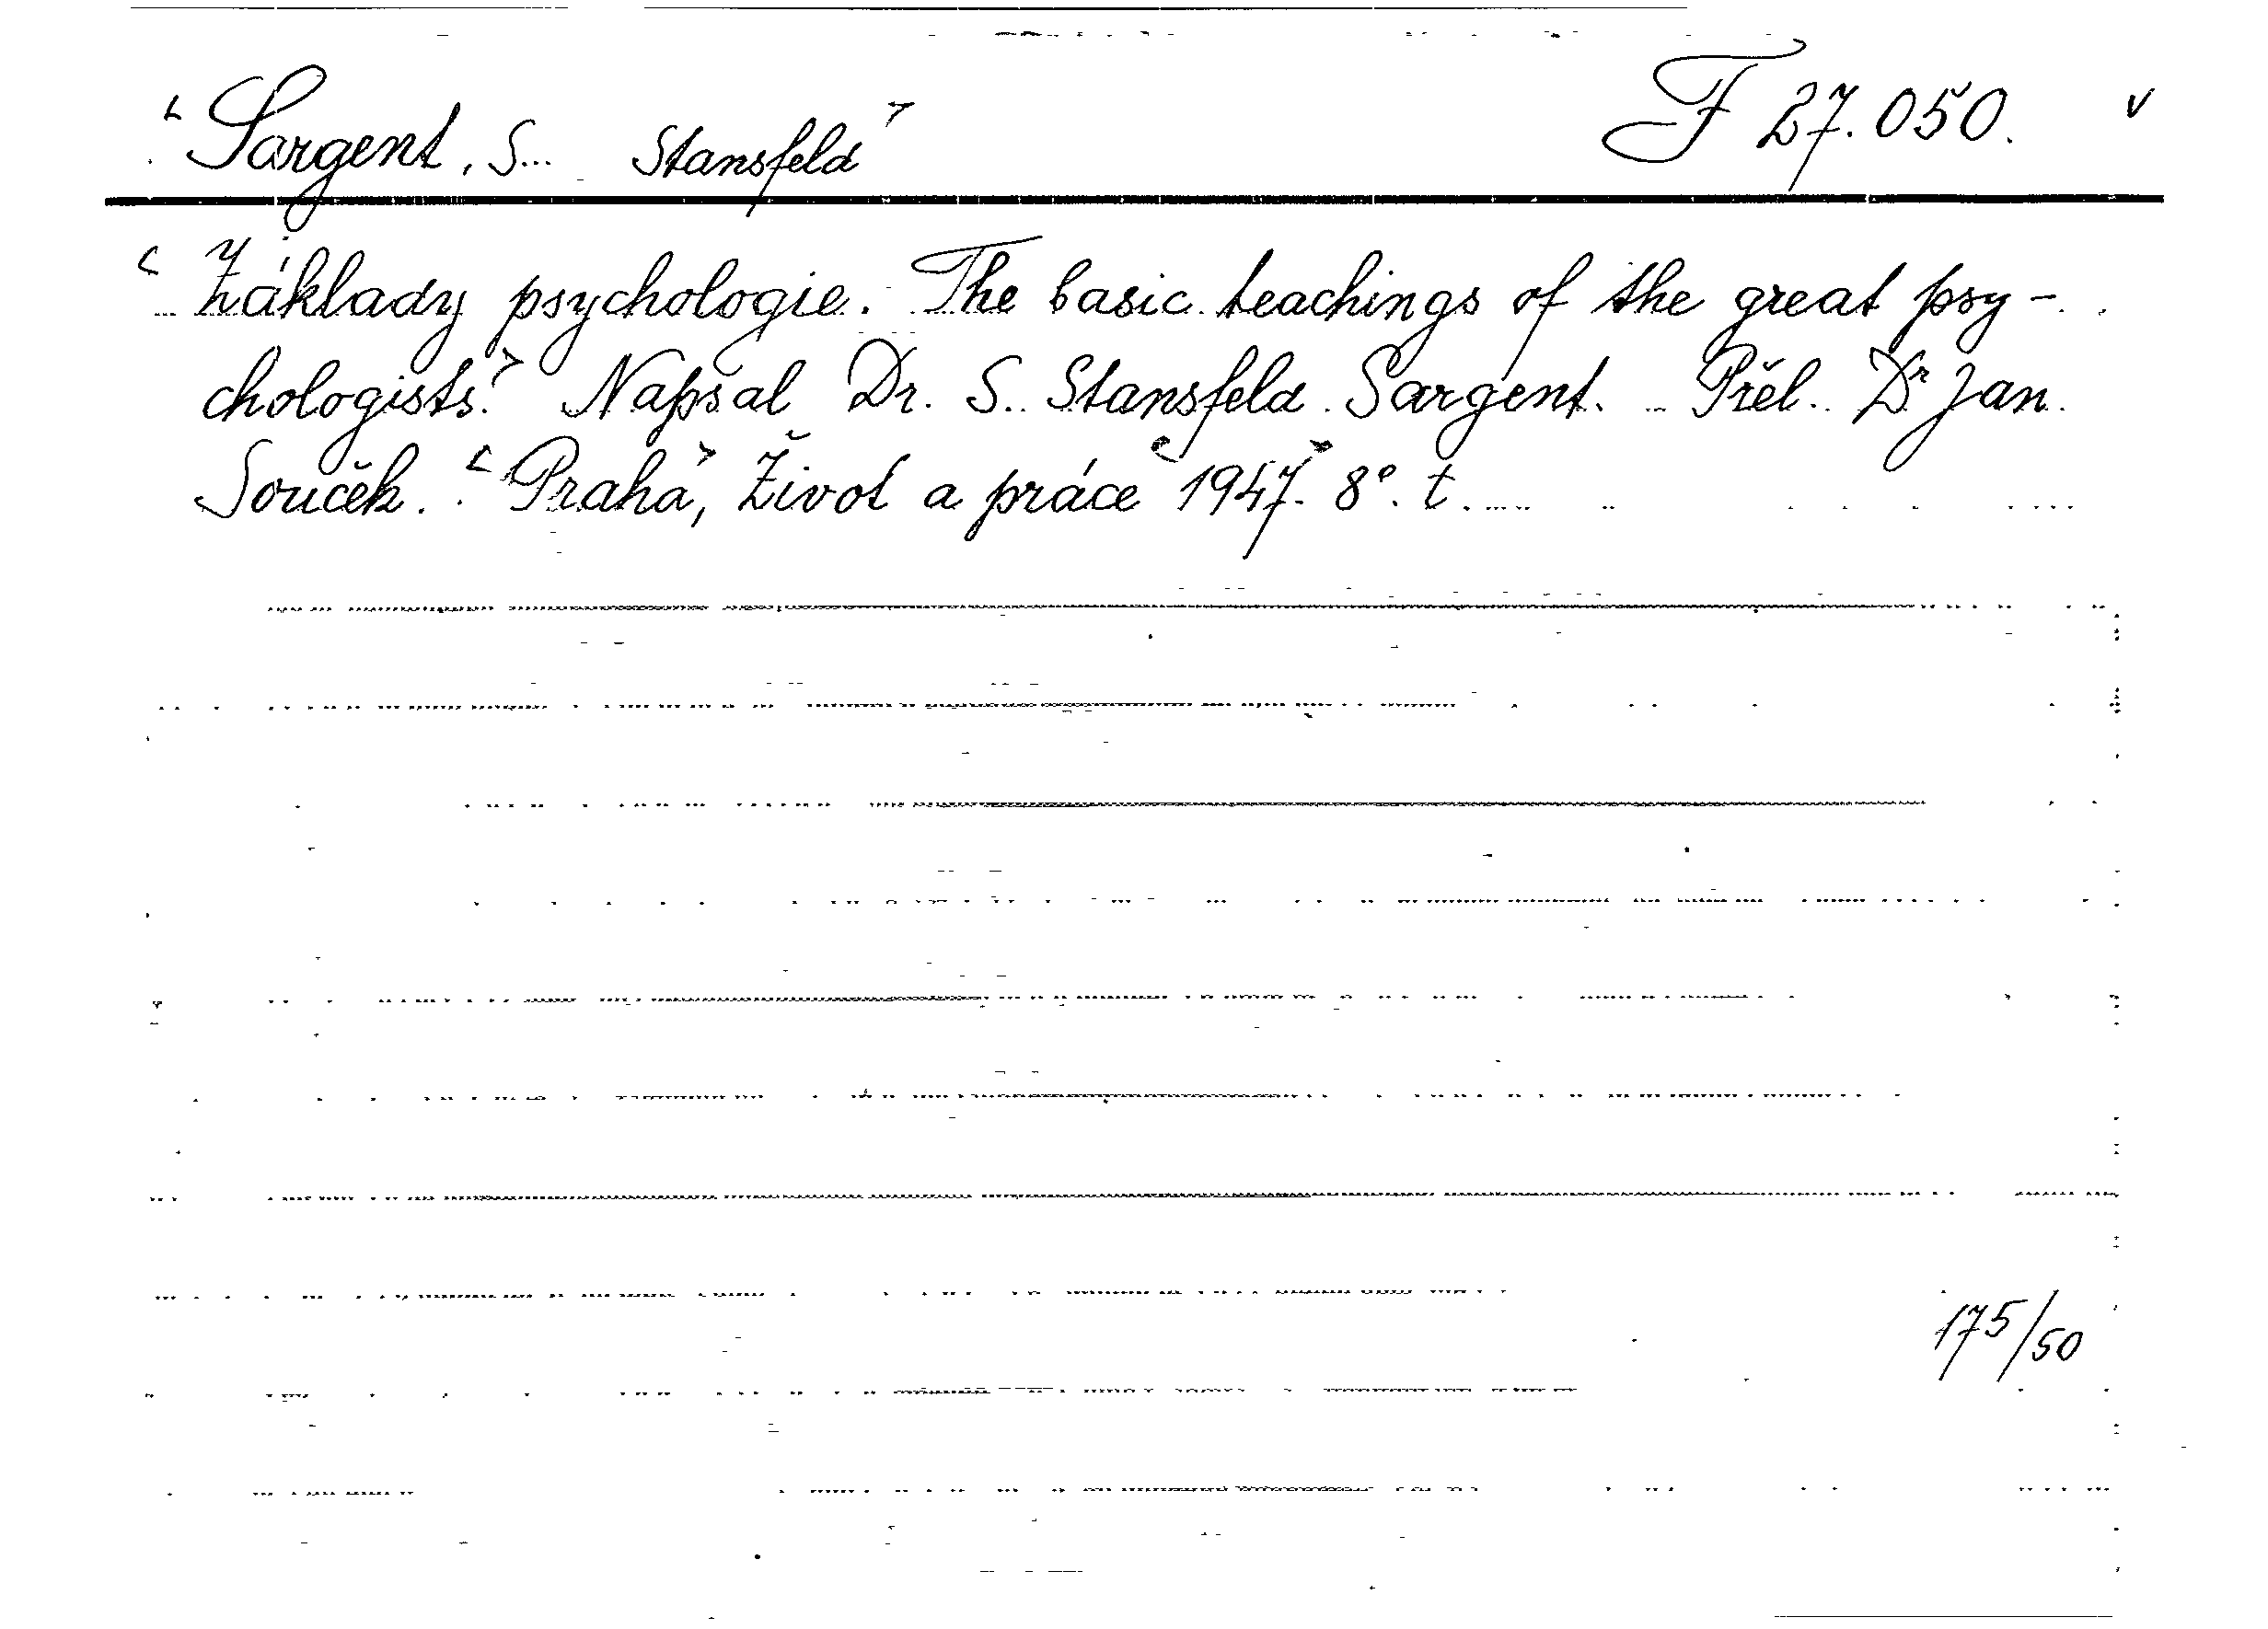 <Sargent, S... Stansfeld> F 27.050. v
<Základy psychologie. The basic teachings of the great psy-
chologists.> Napsal Dr. S. Stansfeld Sargent. Přel. Dr Jan
Souček. <Praha>, Život a práce <1947.> 8°. t.
175/50